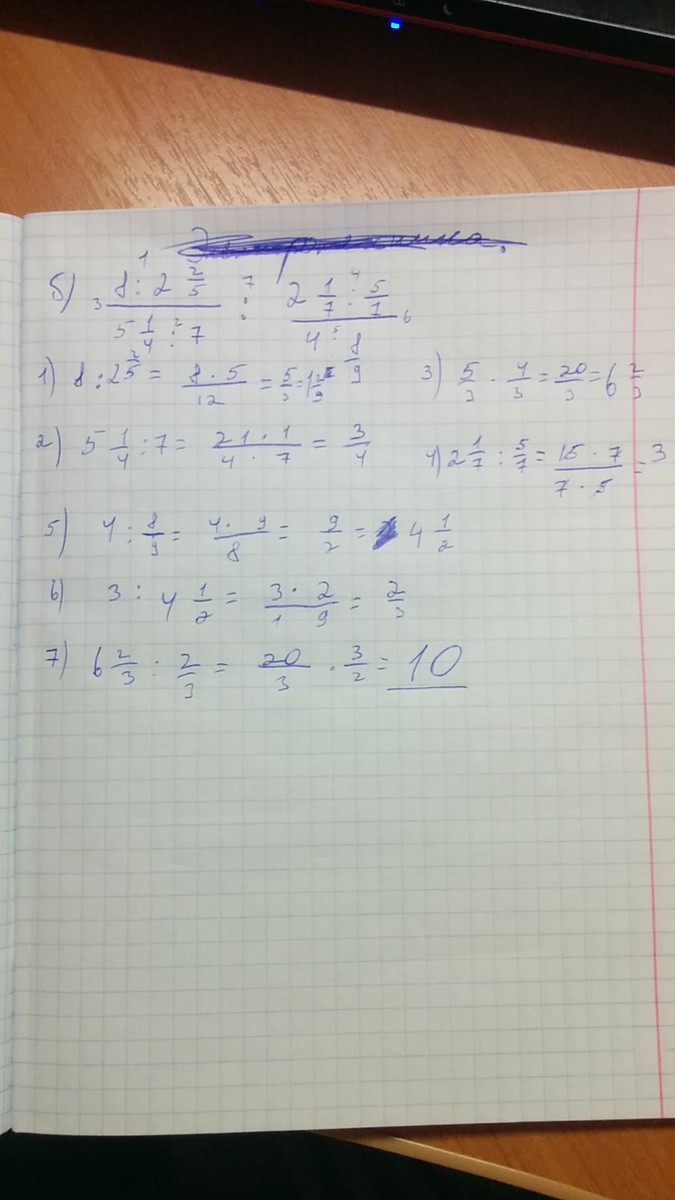 б) 3 (8 :¹ 2 2/5) / (5 1/4 :² 7) :⁷ (2 1/7 :⁴ 5/7) / (4 :⁵ 8/9) 6
1) 8 : 2 2/5 = (8 · 5)/12 = 5/3 =
3) 5/3 · 4/3 = 20/3 = 6 2/3
2) 5 1/4 : 7 = (21 · 1)/(4 · 7) = 3/4
4) 2 1/7 : 5/7 = (15 · 7)/(7 · 5) = 3
5) 4 : 8/9 = (4 · 9)/8 = 9/2 = 4 1/2
6) 3 : 4 1/2 = (3 · 2)/(1 9) = 2/3
7) 6 2/3 : 2/3 = 20/3 · 3/2 = 10